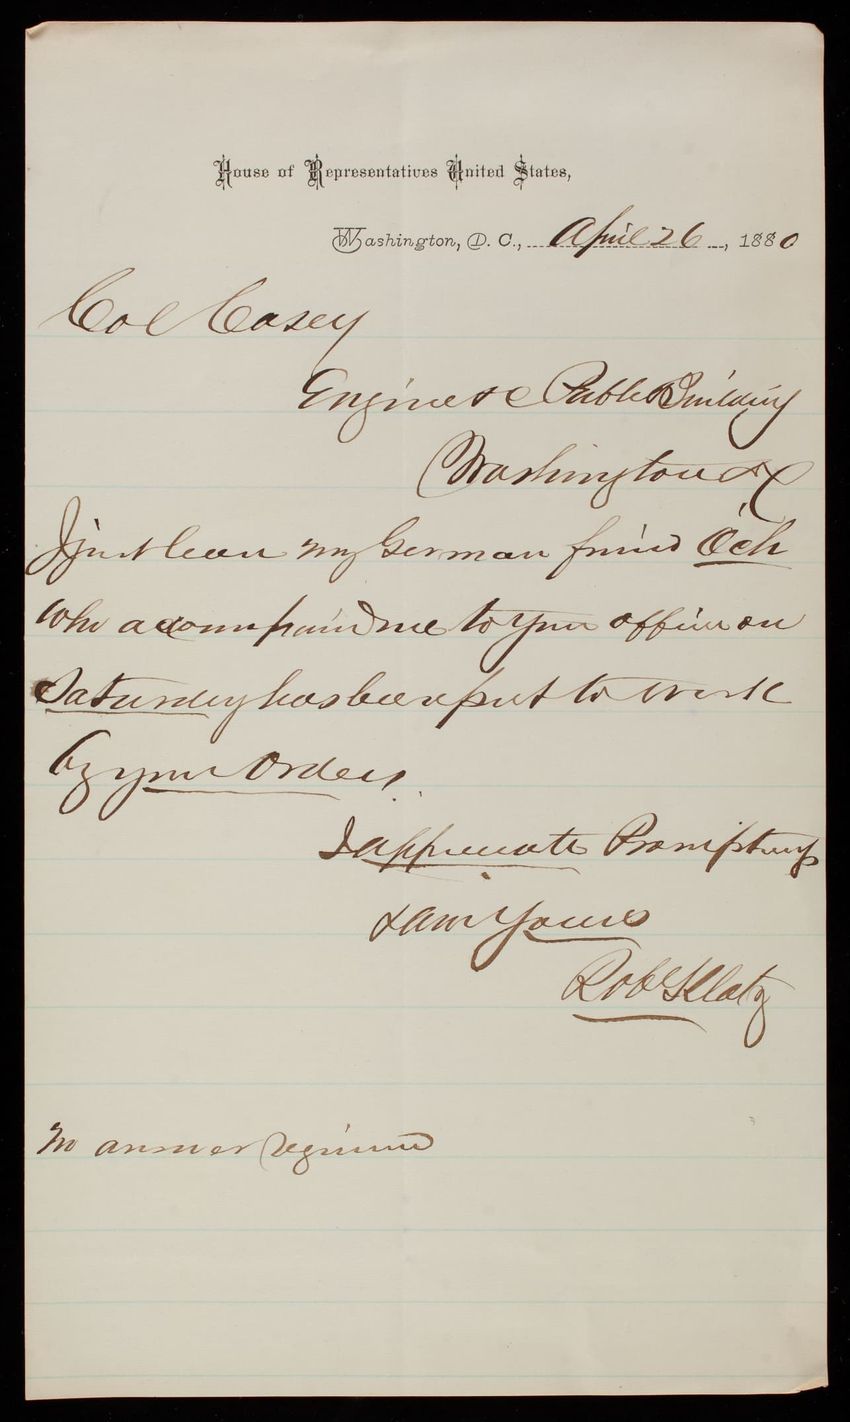 House of Representatives United States,
Washington, D. C., April 26, 1880
Col Casey
Engineer &c Public Building
Washington DC
I just learn my German friend Och
who accompanied me to your office on
Saturday has been put to work
by your orders.
I appreciate Promptness
& am Yours
Robt Klotz
No answer required